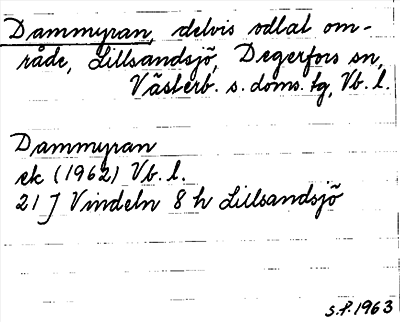 Dammyran, delvis odlat om-
råde, Lillsandsjö, Degerfors sn,
Västerb. s. doms. tg, Vb. l.
Dammyran
ek (1962) Vb. l.
21 J Vindeln 8 h Lillsandsjö
s.f. 1963